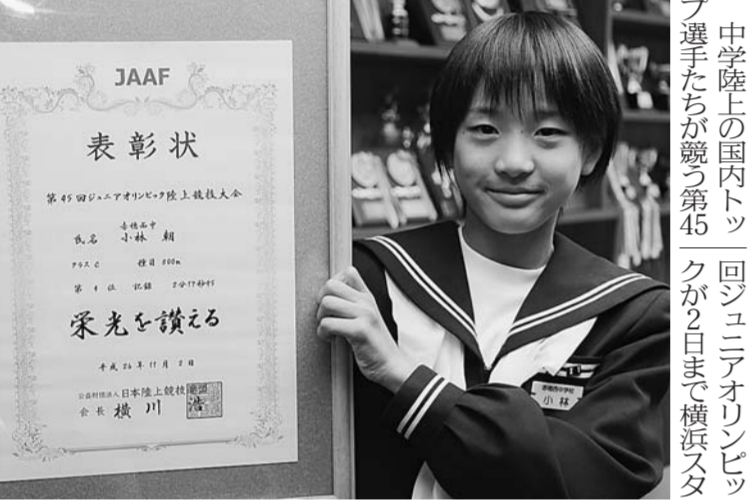 JAAF
表彰状
第45回ジュニアオリンピック陸上競技大会
赤穂西中
氏名 小林 朝
クラス C 種目 800m
第 4 位 記録 2分17秒45
栄光を讃える
平成26年11月2日
公益財団法人 日本陸上競技
会長 横川 浩
赤穂西中学校
小林
中学陸上の国内トッ
プ選手たちが競う第45
回ジュニアオリンピッ
クが2日まで横浜スタ